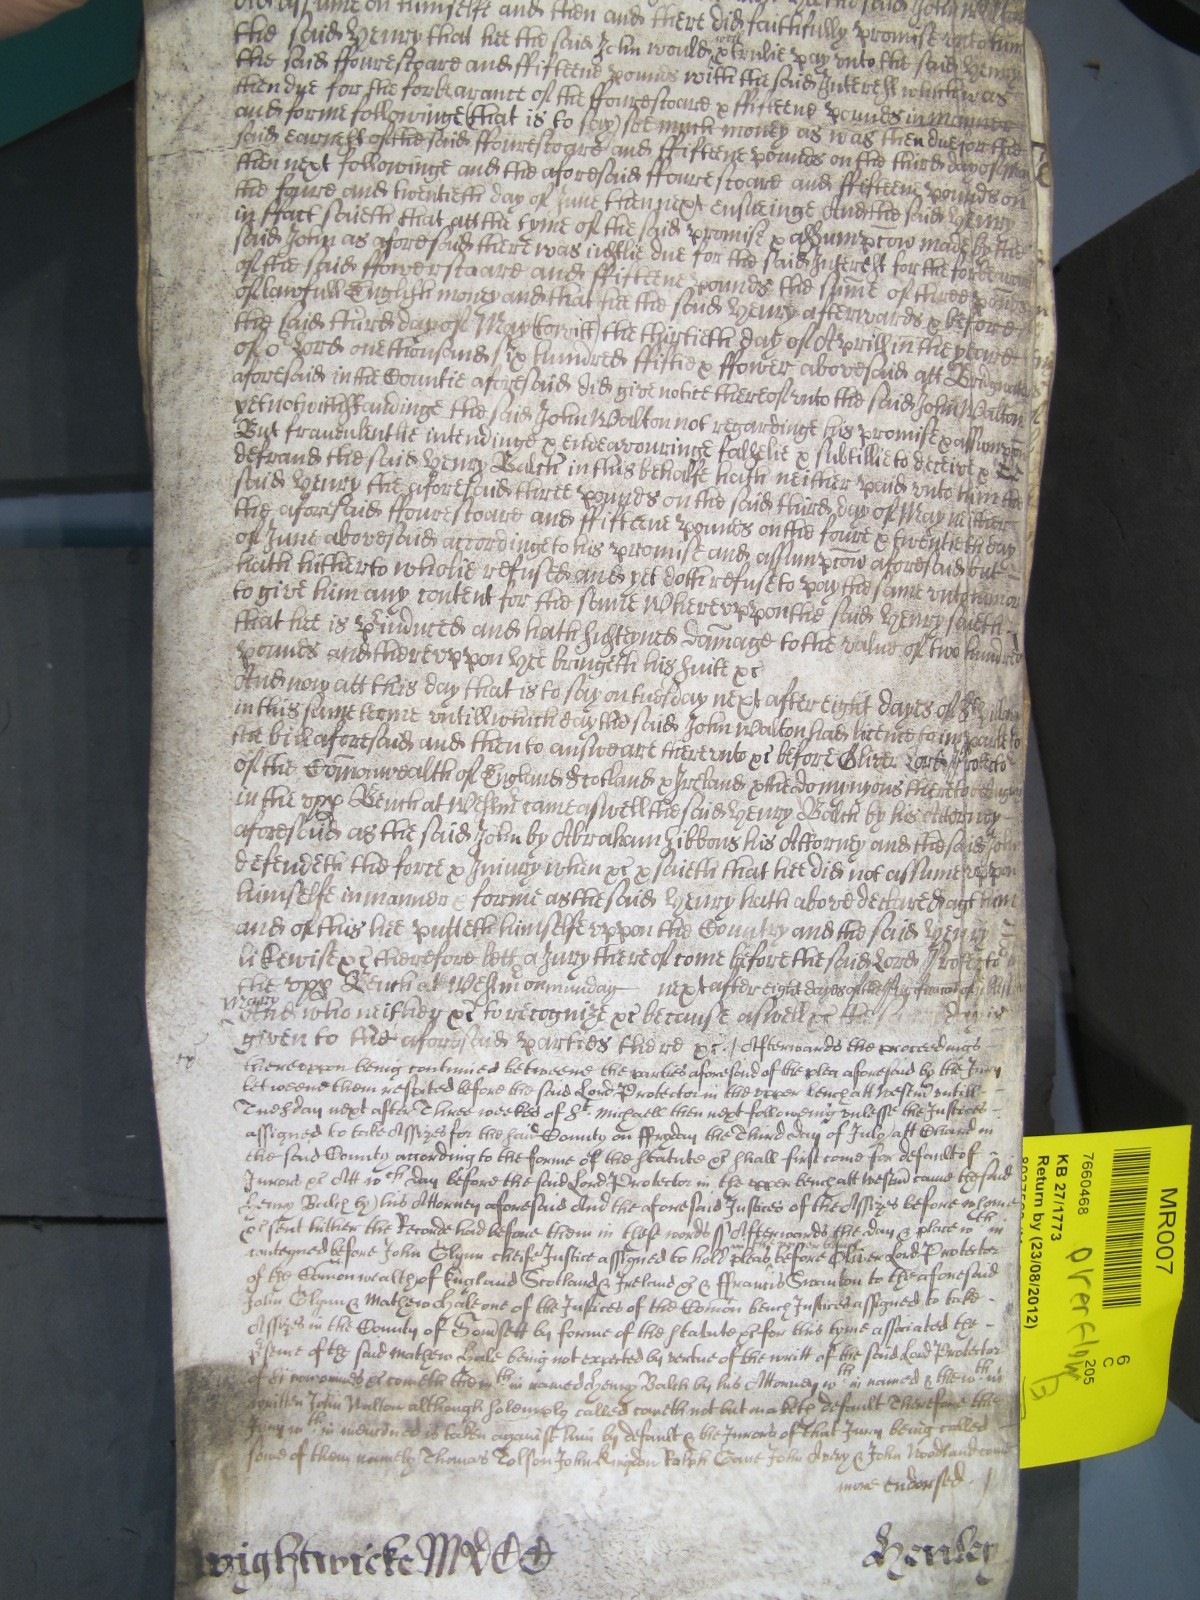 did assume on himselfe and then and there did faithfully promise unto him
the said Henry that hee the said John would well & trulie pay unto the said Henry
the said ffourescoare and ffifteene pounds with the said Interest which was
then due for the forbearance of the ffourescoare & ffifteene pounds in manner
and forme followinge (that is to say) soe much money as was then due for the
said of the said ffourescoare and ffifteene pounds on the third day of May
then next followinge and the aforesaid ffourescoare and ffifteene pounds on
the foure and twentieth day of June then next ensueinge And the said Henry
in ffact saieth that att the tyme of the said promise & assumpcon made by the
said John as aforesaid there was due for the said Interest for the forbearance
of the said ffowerscoare and ffifteene pounds the summe of three pounds
of lawfull English money and that hee the said Henry afterwards & before
the said third day of May (to witt) the thirtieth day of Aprill in the yeare
of or Lord one thousand six hundred ffiftie & ffower abovesaid att Bridgwater
aforesaid in the Countie aforesaid did give notice thereof unto the said John Walton
yet notwithstandinge the said John Walton not regardinge his promise & assumpcon
But fraudulentlie intendinge & endeavouringe falselie & subtillie to deceive &
defraud the said Henry Balch in this behalfe hath neither paid unto him the
said Henry the aforesaid three pounds on the said third day of May neither
the aforesaid ffourescoare and ffifteene pounds on the foure & twentieth day
of June abovesaid accordinge to his promise and assumpcon aforesaid but
hath hitherto wholie refused and yet doth refuse to pay the same unto him or
to give him any content for the same Whereuppon the said Henry saieth
that hee is p'iudiced and hath susteyned damage to the value of two hundred
pounds and thereuppon hee bringeth his suite &c
And now att this day that is to say on tuesday next after eight dayes of St Hillary
in this same terme untill which day the said John Walton had licence to imparle to
the bill aforesaid and then to answeare thereunto &c before Oliver Lord Protector
of the Comonwealth of England Scotland & Ireland & the dominyons thereto belonginge
in the upp Bench at Westm came aswell the said Henry Balch by his Attorney
aforesaid as the said John by Abraham Gibbons his Attorney and the said John
defendeth the force & Iniury when &c & saieth that hee did not assume uppon
himselfe in manner & forme as the said Henry hath above declared agt him
and of this hee putteth himselfe uppon the Country and the said Henry
likewise &c therefore lett a Jury thereof come before the said Lord Protector in
the upp Bench at Westm on munday next after eight dayes of the Purificacon of
Mary
And who neither &c to recognize &c because aswell &c the day is
given to the aforesaid parties there &c / Afterwards the proceedings
thereuppon being continued betweene the parties aforesaid of the plea aforesaid by the Jury
betweene them respited before the said Lord Protector in the upper bench att Westm untill
Tuesday next after Three weekes of St Michaell then next following unlesse the Justices
assigned to take Assizes for the said County on ffryday the Third day of July att Chard in
the said County according to the forme of the Statute &c shall first come for default of
Jurors &c Att wch day before the said Lord Protector in the upper bench att Westm came the said
Henry Balch by his Attorney aforesaid And the aforesaid Justices of the Assizes before whome
&c sent hither the Record had before them in these words ss Afterwards the day & place wthin
conteyned before John Glynn cheife Justice assigned to hold pleas before Oliver Lord Protector
of the Comonwealth of England Scotland & Ireland &c & ffrancis Swanton to the aforesaid
John Glynn & Mathew Hale one of the Justices of the Comon bench Justices assigned to take
Assizes in the County of Somsett by forme of the Statute &c for this tyme associated the
p'sence of the said Mathew Hale being not expected by vertue of the writt of the said Lord Protector
of Si non omnes &c cometh the wthin named Henry Balch by his Attorney wthin named & the wthin
written John Walton although solemnly called cometh not but maketh default Therefore the
Jury wthin mencioned is taken against him by default & the Jurors of that Jury being called
some of them namely Thomas Tolson John Ralph John & John Woodland come
more endorsed
wightwicke
Henley
MR007
6
C
205
7660468
KB 27/1773
Return by (23/08/2012)